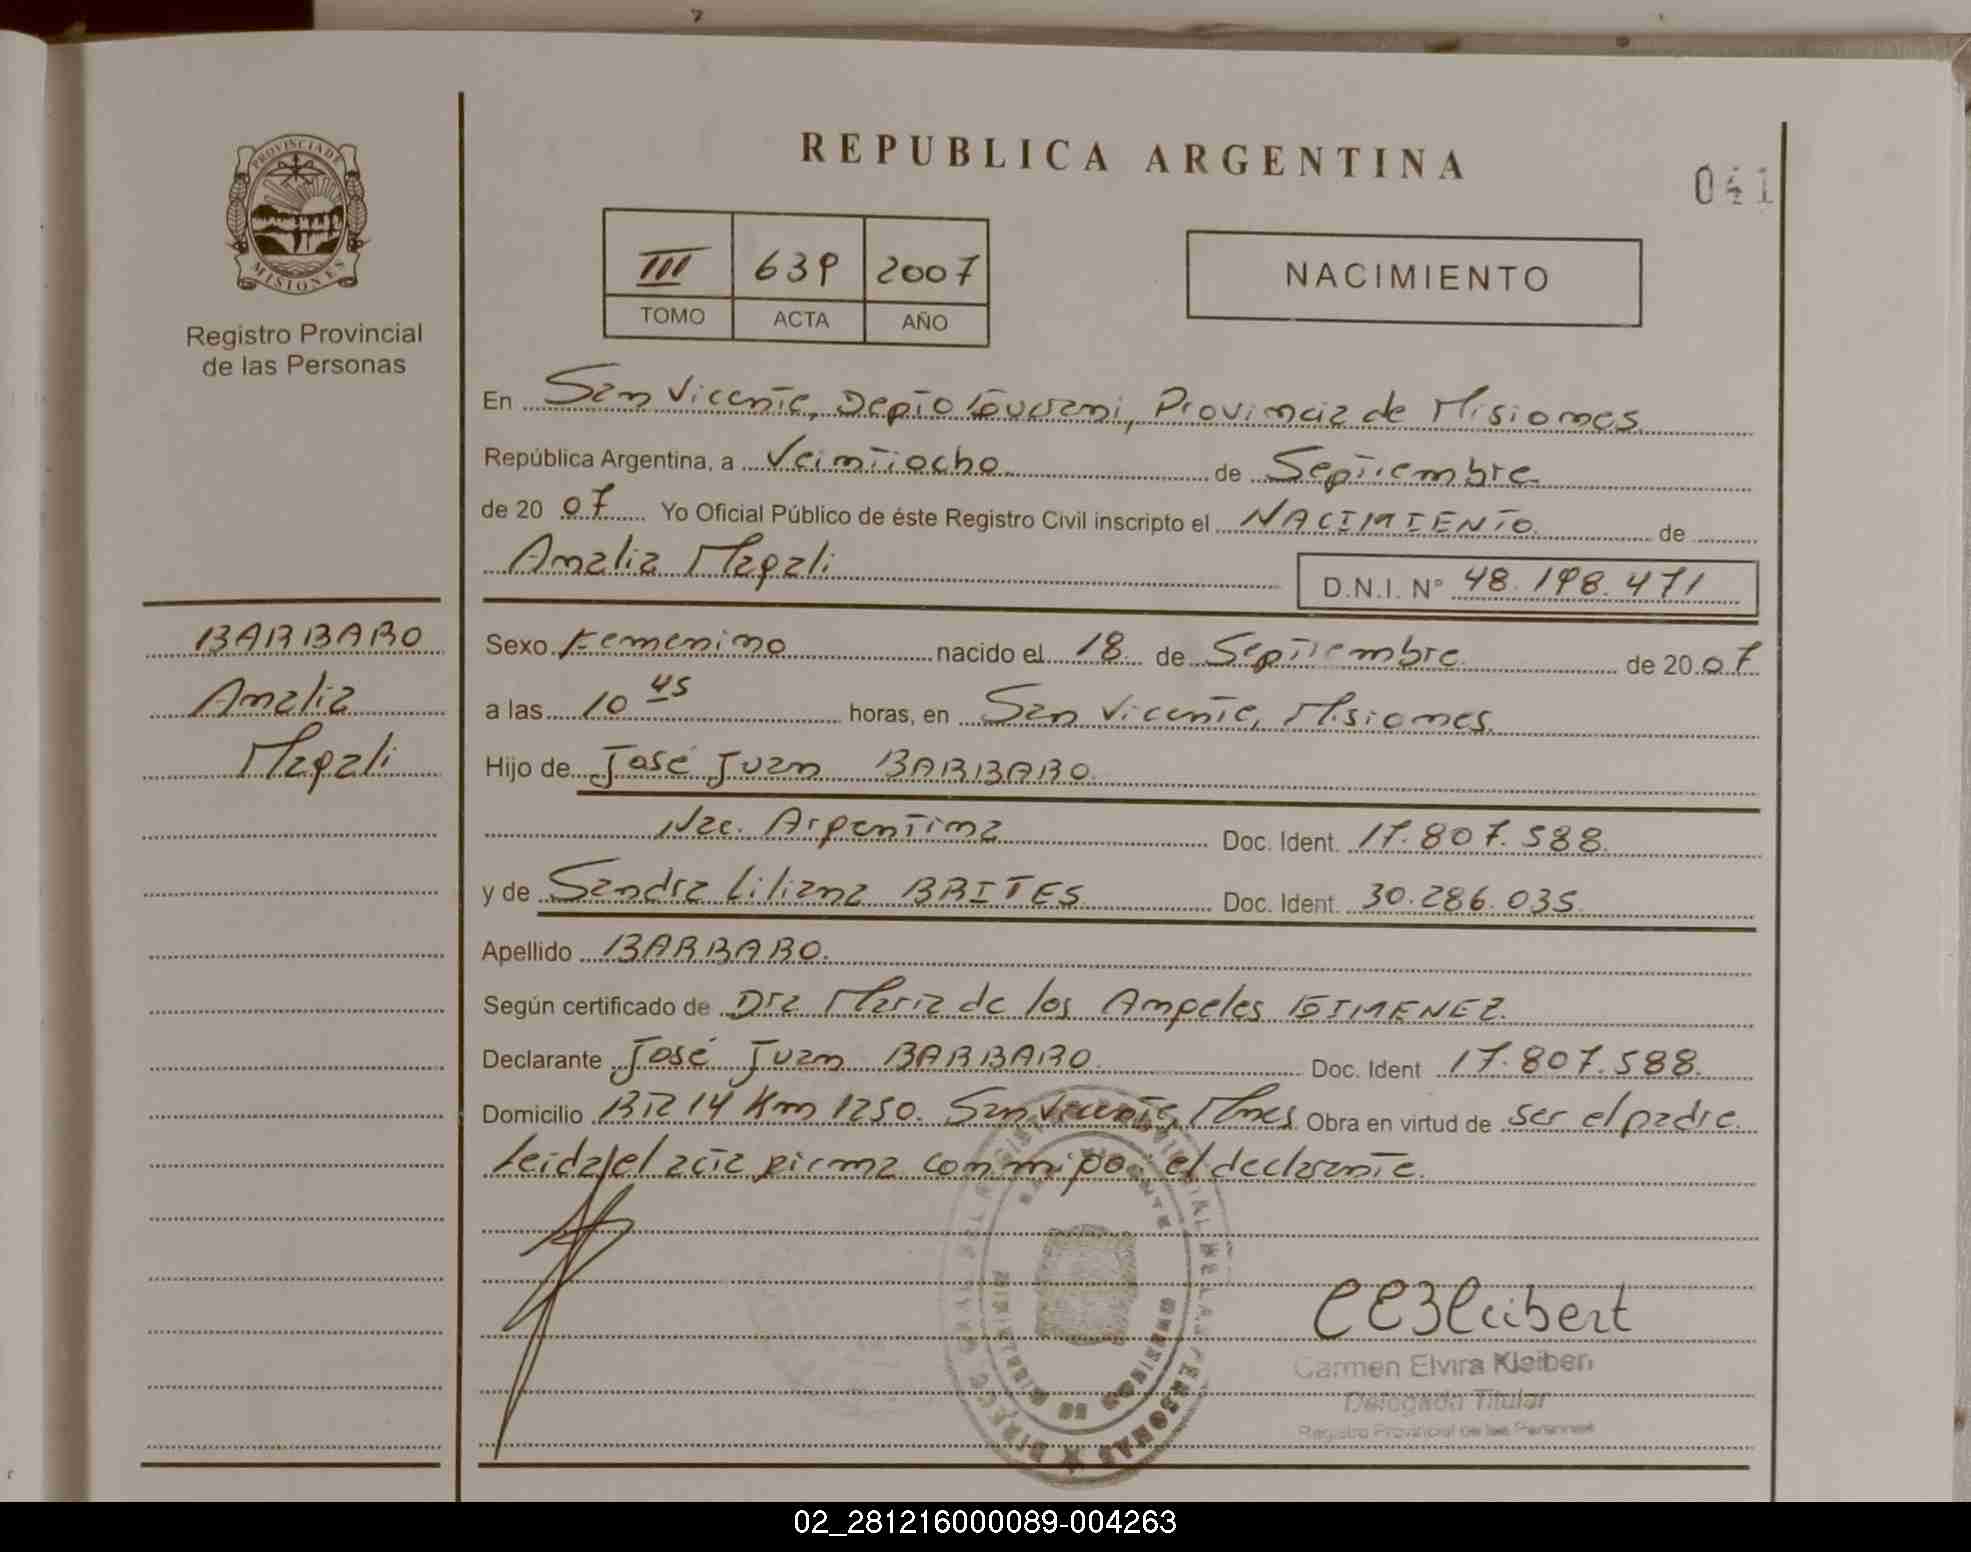 REPUBLICA ARGENTINA
041
PROVINCIA DE
MISIONES
Registro Provincial
de las Personas
III 639 2007
TOMO ACTA AÑO
NACIMIENTO
En San Vicente, Depto Guarani, Provincia de Misiones
República Argentina, a Veintiocho de Septiembre
de 20 07 Yo Oficial Público de éste Registro Civil inscripto el NACIMIENTO de
Analia Magali D.N.I. N° 48.198.471
BARBARO
Analia
Magali
Sexo Femenino nacido el 18 de Septiembre de 20 07
a las 10 45 horas, en San Vicente, Misiones.
Hijo de José Juan BARBARO.
Nac. Argentina Doc. Ident. 17.807.588.
y de Sandra Liliana BRITES Doc. Ident. 30.286.035.
Apellido BARBARO.
Según certificado de Dra Maria de los Angeles GIMENEZ.
Declarante José Juan BARBARO. Doc. Ident 17.807.588.
Domicilio 14 Km 1250. San Vicente, Mnes Obra en virtud de ser el padre.
Leida el acta firma conmigo: el declarante.
Carmen Elvira Kleibert
Delegada Titular
Registro Provincial de las Personas
02_281216000089-004263